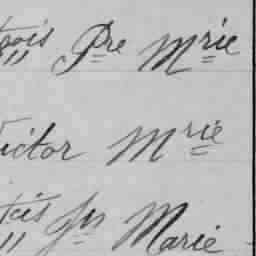 çois Pre Mrie
ictor Mrie
çcis Js Marie